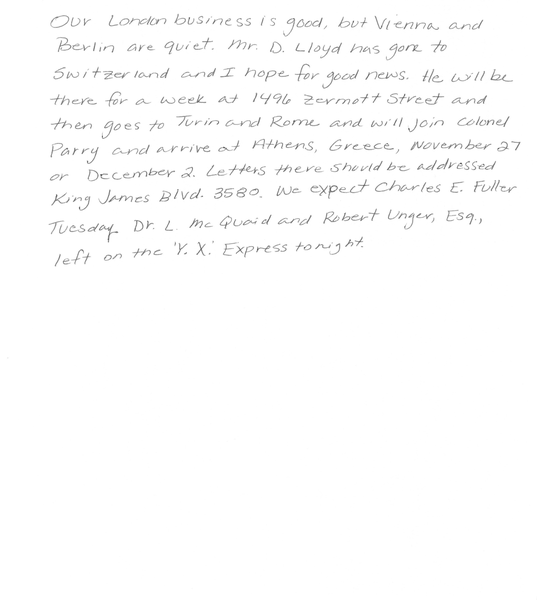 Our London business is good, but Vienna and
Berlin are quiet. Mr. D. Lloyd has gone to
Switzerland and I hope for good news. He will be
there for a week at 1496 Zermott Street and
then goes to Turin and Rome and will join Colonel
Parry and arrive at Athens, Greece, November 27
or December 2. Letters there should be addressed
King James Blvd. 3580. We expect Charles E. Fuller
Tuesday. Dr. L. McQuaid and Robert Unger, Esq.,
left on the 'Y. X.' Express tonight.